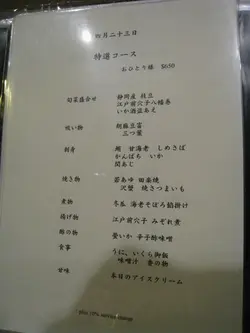 四月二十三日
特選コース
おひとり様 $650
旬菜盛合せ 静岡産 枝豆
江戸前穴子八幡巻
いか酒盗あえ
吸い物 胡麻豆富
三つ葉
お刺身 鯛 甘海老 しめさば
かんぱち いか
関あじ
焼き物 若あゆ 田楽焼
沢蟹 焼さつまいも
煮物 冬瓜 海老そぼろ餡掛け
揚げ物 江戸前穴子 みぞれ煮
酢の物 蛍いか 辛子酢味噌
食事 うに、いくら御飯
味噌汁 香の物
甘味 本日のアイスクリーム
plus 10% service charge